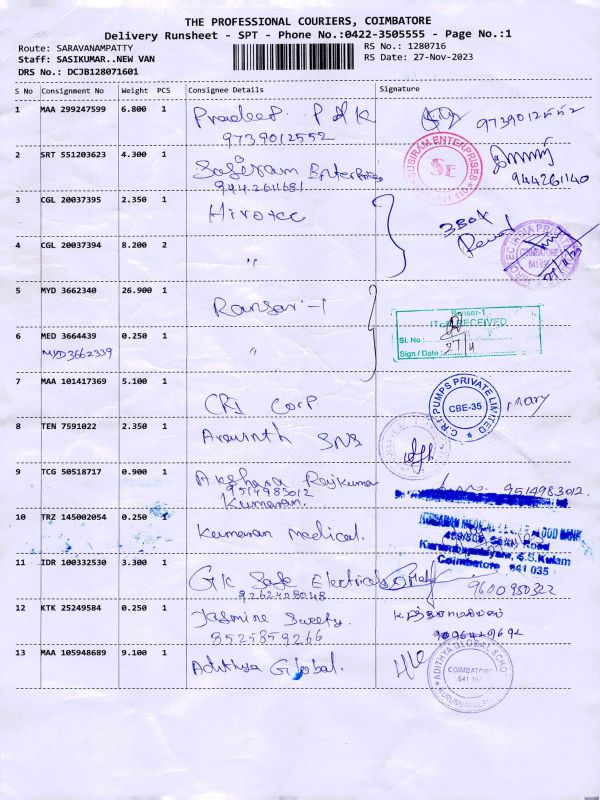 THE PROFESSIONAL COURIERS, COIMBATORE
Delivery Runsheet - SPT - Phone No.:0422-3505555 - Page No.:1
Route: SARAVANAMPATTY RS No.: 1280716
Staff: SASIKUMAR..NEW VAN RS Date: 27-Nov-2023
DRS No.: DCJB128071601
S No Consignment No Weight PCS Consignee Details Signature
1 MAA 299247599 6.800 1 Pradeep P A K 9739012552
9739012552
2 SRT 551203623 4.300 1 Susiram Enterprises SUSIRAM ENTERPRISES SE
9442611681 944261140
3 CGL 20037395 2.350 1 Hirotec 3 Box
4 CGL 20037394 8.200 2 " COIMBATORE 641
5 MYD 3662340 26.900 1 Ransar-1 Ransar-1
ITEM RECEIVED
6 MED 3664439 0.250 1 " Sl. No :
MYD3662339 Sign / Date : 27/11
7 MAA 101417369 5.100 1 CRI Corp C.R.I PUMPS PRIVATE LIMITED CBE-35 Mary
8 TEN 7591022 2.350 1 Aravinth SNS
9 TCG 50518717 0.900 1 Akshara Rajkumar
9514983012 9514983012.
Kumaran.
10 TRZ 145002054 0.250 1 Kumaran Medical. BLOOD BANK
Road
S.S.Kulam
Coimbatore 641 035
11 IDR 100332530 3.300 1 GK Safe Electrical
9262428048 9600950322
12 KTK 25249584 0.250 1 Jasmine Sweety.
8525859266
13 MAA 105948689 9.100 1 Adithya Global. ADITHYA GLOBAL SCHOOL COIMBATORE